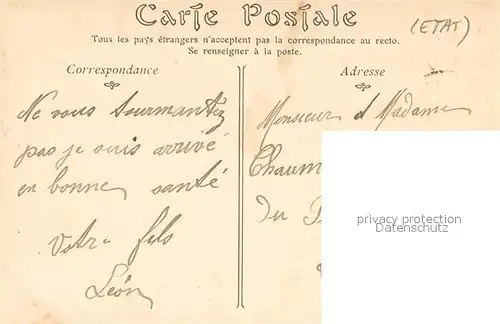 Carte Postale
(ETAT)
Tous les pays étrangers n'acceptent pas la correspondance au recto.
Se renseigner à la poste.
Correspondance
Ne vous tourmantez
pas je suis arrivé
en bonne santé
Votre fils
Léon
Adresse
Monsieur et Madame
Chaum
du
privacy protection
www.delcampe.net